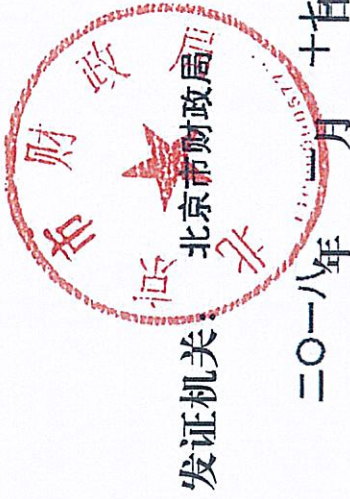 发证机关： 北京市财政局
二〇一八年 月 十 日
北京市财政局